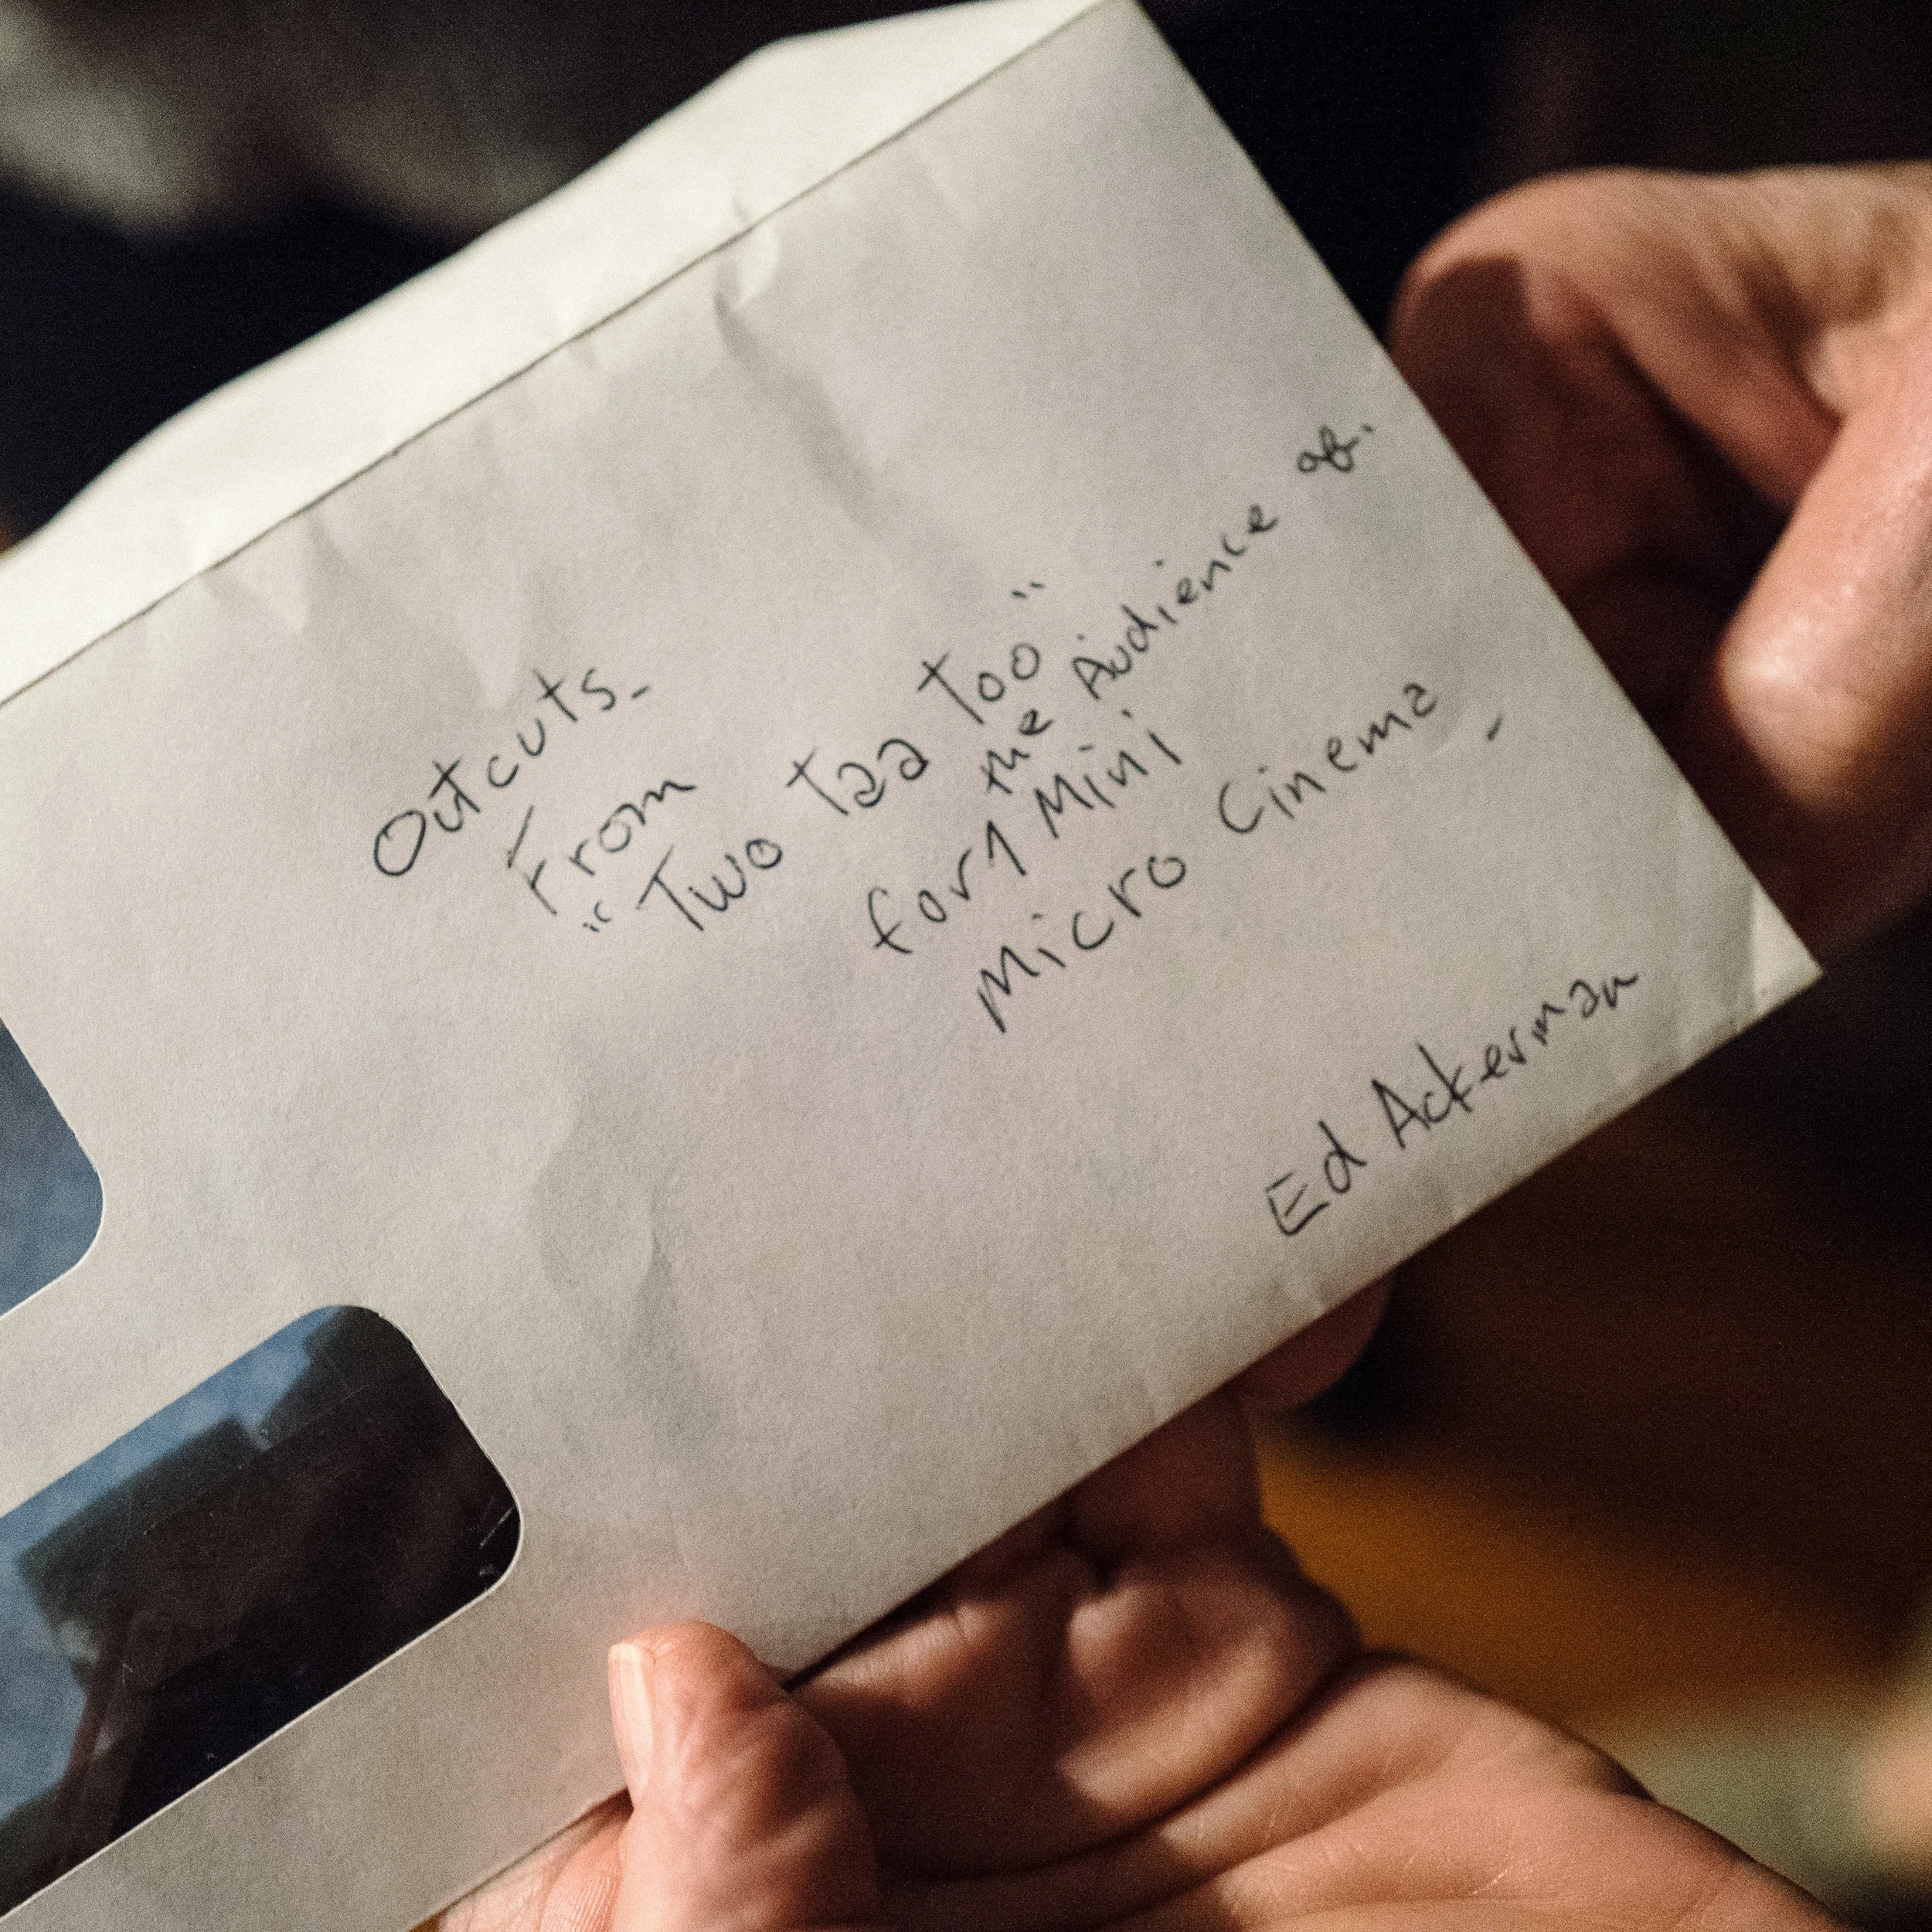 Outcuts-
From
"Two Taa Too"
for the Audience of.
Mini
Micro Cinema-
Ed Ackerman